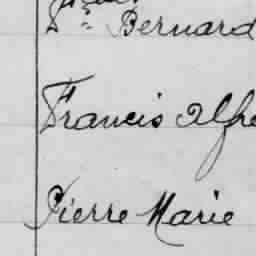 Bernard
Francis Alfre
Pierre Marie